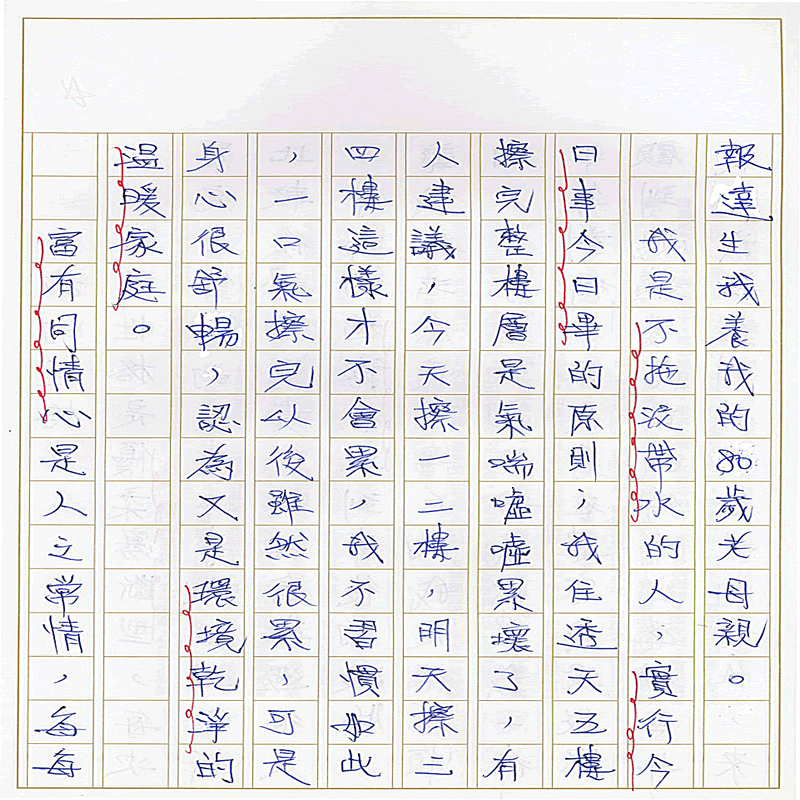 報達生我養我的80歲老母親。
我是不拖泥帶水的人，實行今
日事今日畢的原則；我住透天五樓
擦完整樓層是氣喘噓噓累壞了，有
人建議，今天擦一二樓，明天擦三
四樓這樣才不會累，我不習慣如此
，一口氣擦完以後雖然很累，可是
身心很舒暢，認為又是環境乾淨的
溫暖家庭。
富有同情心是人之常情，每每